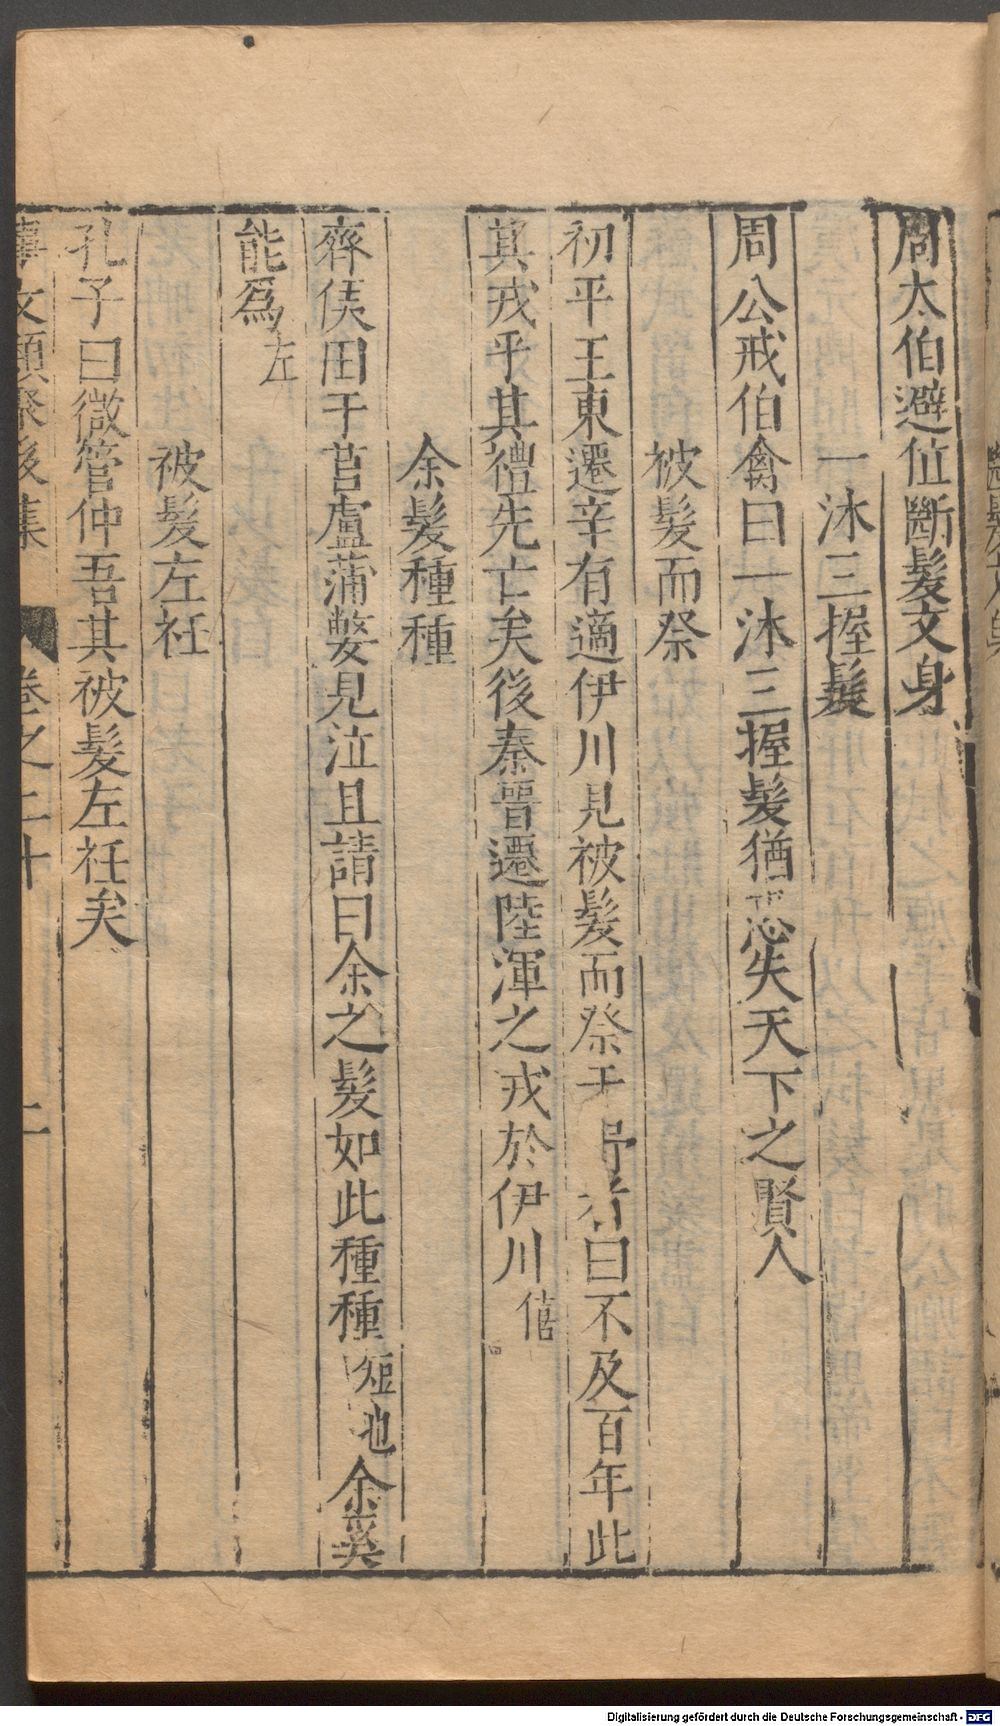 周太伯避位斷髮文身
一沐三握髮
周公戒伯禽曰一沐三握髮猶恐失天下之賢人
被髮而祭
初平王東遷辛有適伊川見被髮而祭于野者曰不及百年此
其戎乎其禮先亡矣後秦晉遷陸渾之戎於伊川僖
余髮種種
齊侯田于莒盧蒲嫳見泣且請曰余之髮如此種種短也余奚
能爲左
被髮左衽
孔子曰微管仲吾其被髮左衽矣
事文類聚後集 卷之二十 二
Digitalisierung gefördert durch die Deutsche Forschungsgemeinschaft - DFG